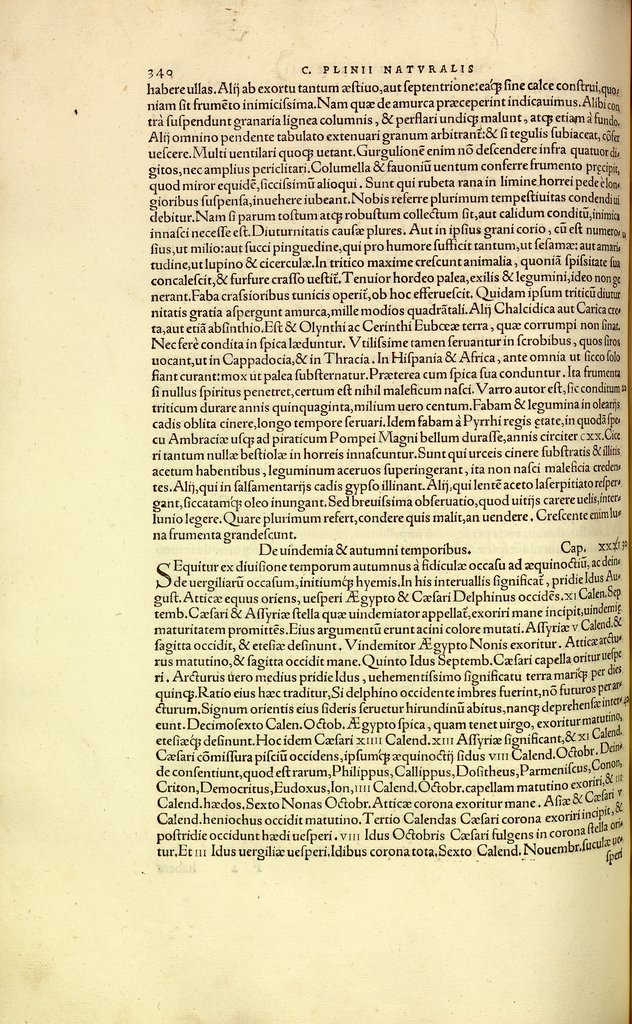 340 C. PLINII NATVRALIS
habere ullas. Alĳ ab exortu tantum æstiuo, aut septentrione: eaq́ʒ sine calce construi, quo-
niam sit frumẽto inimicissima. Nam quæ de amurca præceperint indicauimus. Alibi con
trà suspendunt granaria lignea columnis, & perflari undiq́ʒ malunt, atq́ʒ etiam à fundo.
Alĳ omnino pendente tabulato extenuari granum arbitrant̃: & si tegulis subiaceat, cõfer
uescere. Multi uentilari quoq́ʒ uetant. Gurgulionẽ enim nõ descendere infra quatuor di-
gitos, nec amplius periclitari. Columella & fauoniũ uentum conferre frumento pręcipit,
quod miror equidẽ, siccissimũ alioqui. Sunt qui rubeta rana in limine horrei pede è lon-
gioribus suspensa, inuehere iubeant. Nobis referre plurimum tempestiuitas condendi ui
debitur. Nam si parum tostum atq́ʒ robustum collectum sit, aut calidum conditũ, inimica
innasci necesse est. Diuturnitatis causæ plures. Aut in ipsius grani corio, cũ est numero-
sius, ut milio: aut succi pinguedine, qui pro humore sufficit tantum, ut sesamæ: aut amari-
tudine, ut lupino & cicerculæ. In tritico maxime crescunt animalia, quoniã spissitate sua
concalescit, & furfure crasso uestit̃. Tenuior hordeo palea, exilis & legumini, ideo non ge
nerant. Faba crassioribus tunicis operit̃, ob hoc efferuescit. Quidam ipsum triticũ diutur
nitatis gratia aspergunt amurca, mille modios quadrãtali. Alĳ Chalcidica aut Carica cre-
ta, aut etiã absinthio. Est & Olynthi ac Cerinthi Eubœæ terra, quæ corrumpi non sinat.
Nec ferè condita in spica læduntur. Vtilissime tamen seruantur in scrobibus, quos siros
uocant, ut in Cappadocia, & in Thracia. In Hispania & Africa, ante omnia ut sicco solo
fiant curant: mox ut palea substernatur. Præterea cum spica sua conduntur. Ita frumenta
si nullus spiritus penetret, certum est nihil maleficum nasci. Varro autor est, sic conditum
triticum durare annis quinquaginta, milium uero centum. Fabam & legumina in oleariĳs
cadis oblita cinere, longo tempore seruari. Idem fabam à Pyrrhi regis ętate, in quodã spe-
cu Ambraciæ usq́ʒ ad piraticum Pompei Magni bellum durasse, annis circiter cxx. Cice
ri tantum nullæ bestiolæ in horreis innascuntur. Sunt qui urceis cinere substratis & illitis,
acetum habentibus, leguminum aceruos superingerant, ita non nasci maleficia creden-
tes. Alĳ, qui in salsamentarĳs cadis gypso illinant. Alĳ, qui lentẽ aceto laserpitiato resper-
gant, siccatamq́ʒ oleo inungant. Sed breuissima obseruatio, quod uitĳs carere uelis, inter-
lunio legere. Quare plurimum refert, condere quis malit, an uendere. Crescente enim lu-
na frumenta grandescunt.
De uindemia & autumni temporibus. Cap. XXXI
SEquitur ex diuisione temporum autumnus à fidiculæ occasu ad æquinoctiũ, ac dein-
de uergiliarũ occasum, initiumq́ʒ hyemis. In his interuallis significat̃, pridie Idus Au-
gust. Atticæ equus oriens, uesperi Ægypto & Cæsari Delphinus occidẽs. XI Calen. Sep
temb. Cæsari & Assyriæ stella quæ uindemiator appellat̃, exoriri mane incipit, uindemię
maturitatem promittẽs. Eius argumentũ erunt acini colore mutati. Assyriæ V Calend. &
sagitta occidit, & etesiæ desinunt. Vindemitor Ægypto Nonis exoritur. Atticæ arctu-
rus matutino, & sagitta occidit mane. Quinto Idus Septemb. Cæsari capella oritur uespe
ri. Arcturus uero medius pridie Idus, uehementissimo significatu terra mariq́ʒ per dies
quinq́ʒ. Ratio eius hæc traditur, Si delphino occidente imbres fuerint, nõ futuros per ar-
cturum. Signum orientis eius sideris seruetur hirundinũ abitus, nanq́ʒ deprehensæ inter-
eunt. Decimosexto Calen. Octob. Ægypto spica, quam tenet uirgo, exoritur matutino,
etesiæq́ʒ desinunt. Hoc idem Cæsari XIIII Calend. XIII Assyriæ significant, & XI Calend.
Cæsari cõmissura pisciũ occidens, ipsumq́ʒ æquinoctĳ sidus VIII Calend. Octobr. Dein-
de consentiunt, quod est rarum, Philippus, Callippus, Dositheus, Parmeniscus, Conon,
Criton, Democritus, Eudoxus, Ion, IIII Calend. Octobr. capellam matutino exoriri, & III
Calend. hædos. Sexto Nonas Octobr. Atticæ corona exoritur mane. Asiæ & Cæsari V
Calend. heniochus occidit matutino. Tertio Calendas Cæsari corona exoriri incipit, &
postridie occidunt hædi uesperi. VIII Idus Octobris Cæsari fulgens in corona stella ori-
tur. Et III Idus uergiliæ uesperi. Idibus corona tota. Sexto Calend. Nouembr. suculæ ue-
speri